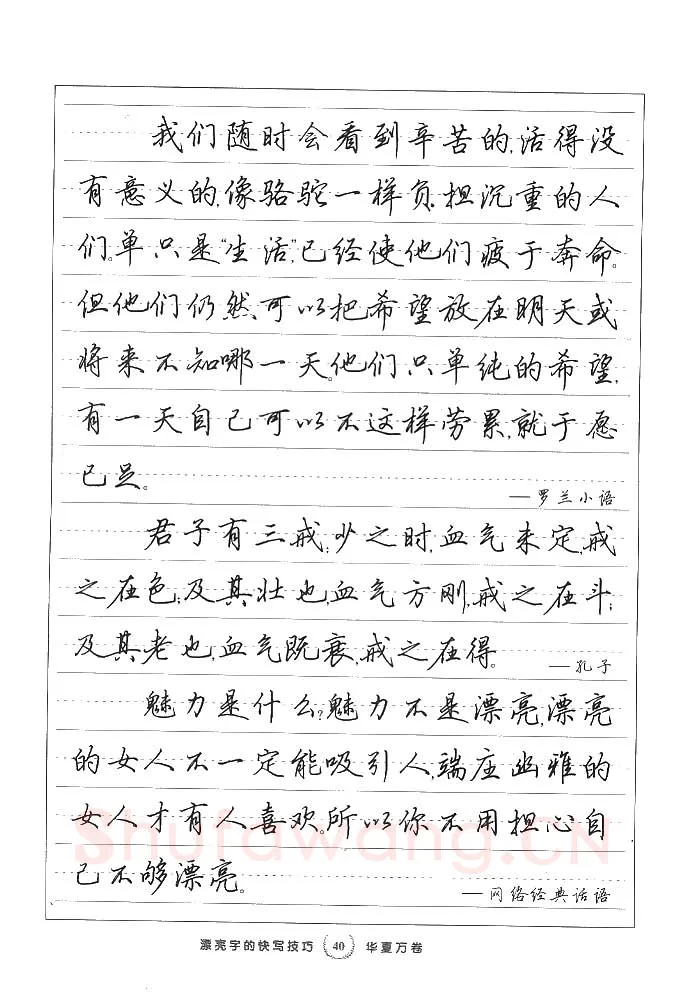 我们随时会看到辛苦的,活得没
有意义的,像骆驼一样负担沉重的人
们。单只是“生活”,已经使他们疲于奔命。
但他们仍然可以把希望放在明天或
将来不知哪一天。他们只单纯的希望,
有一天自己可以不这样劳累,就于愿
已足。
—罗兰小语
君子有三戒:少之时,血气未定,戒
之在色;及其壮也,血气方刚,戒之在斗;
及其老也,血气既衰,戒之在得。
—孔子
魅力是什么?魅力不是漂亮,漂亮
的女人不一定能吸引人,端座幽雅的
女人才有人喜欢。所以你不用担心自
己不够漂亮。
—网络经典话语
Shufawang.CN
漂亮字的快写技巧 40 华夏万卷